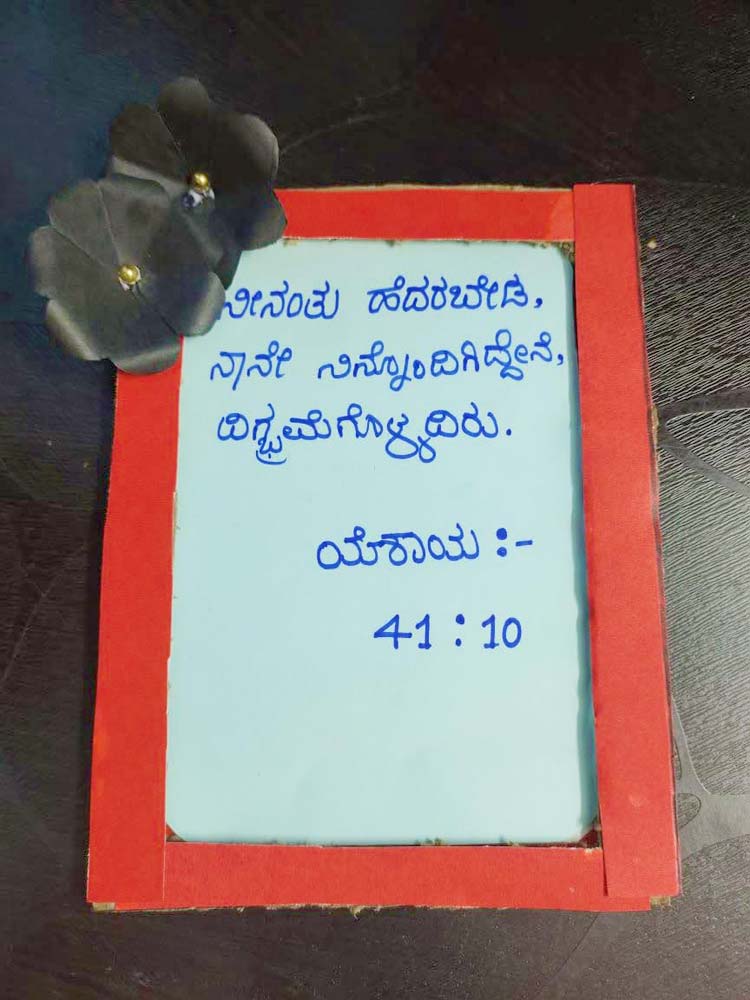 ನೀನಂತು ಹೆದರಬೇಡ,
ನಾನೇ ನಿನ್ನೊಂದಿಗಿದ್ದೇನೆ,
ದಿಗ್ಭ್ರಮೆಗೊಳ್ಳದಿರು.
ಯೆಶಾಯ :-
41 : 10